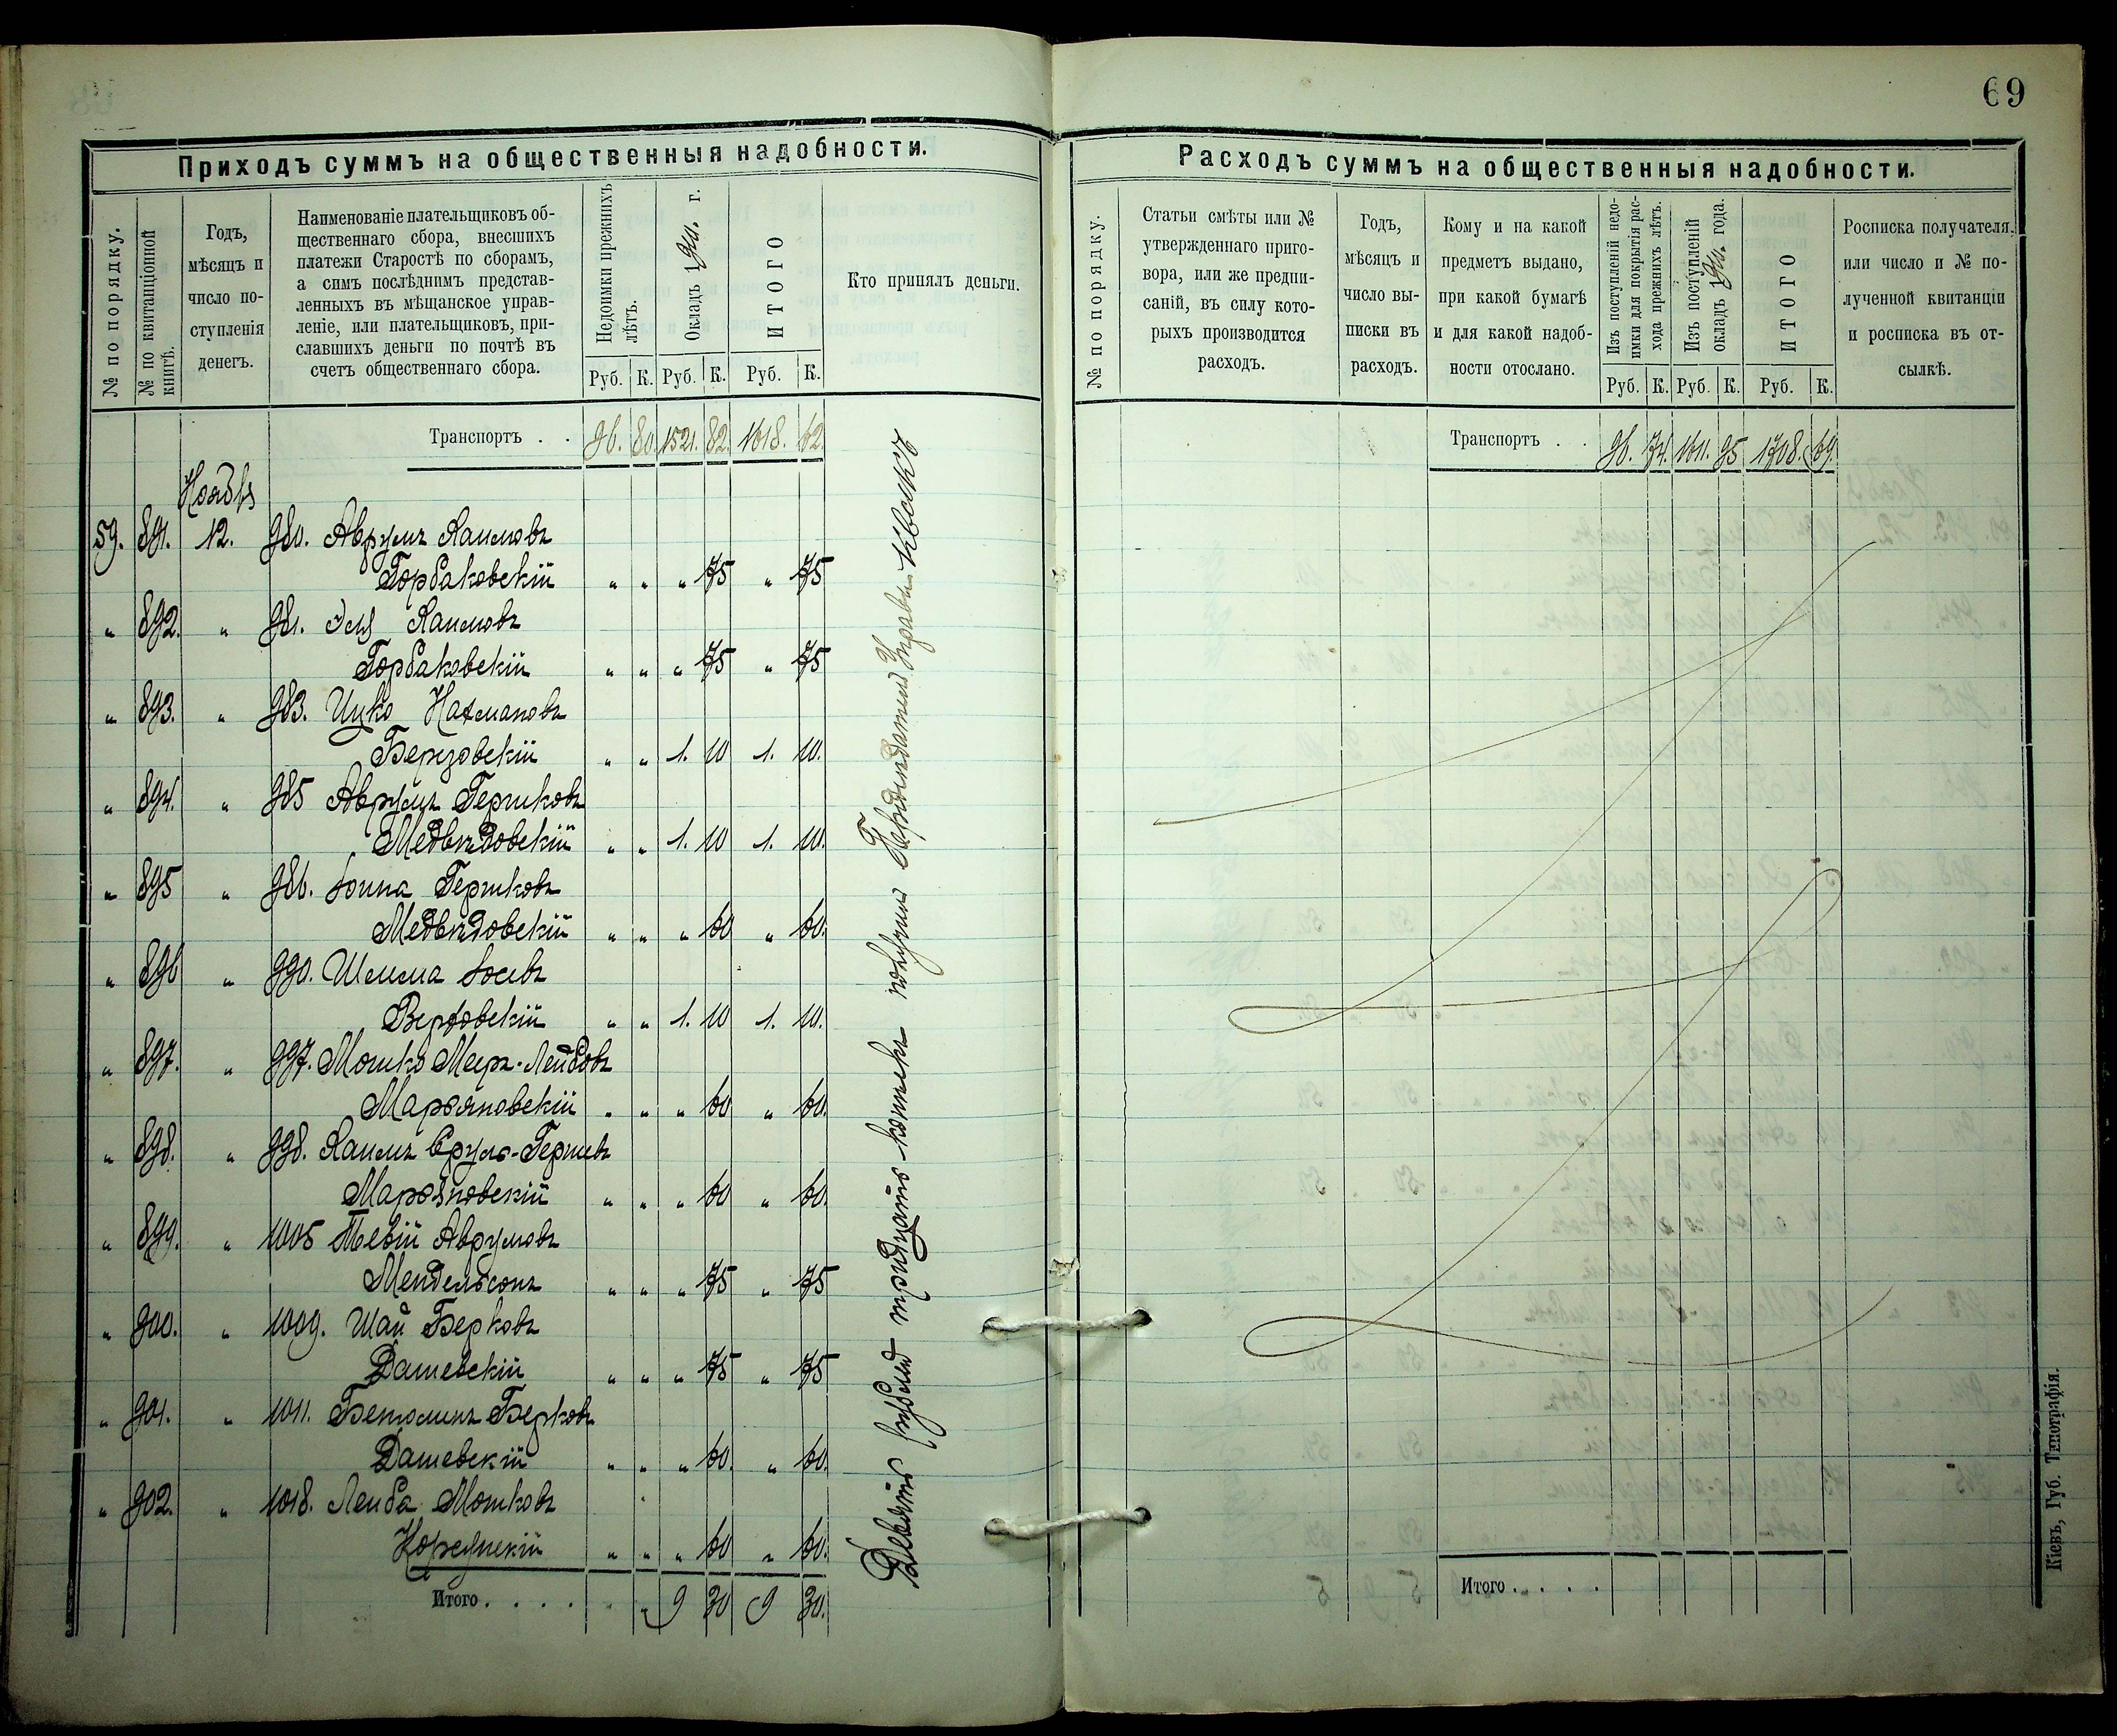 69
Приходъ суммъ на общественныя надобности.
№ по порядку.
№ по квитанціонной
книгѣ.
Годъ,
мѣсяцъ и
число по-
ступленія
денегъ.
Наименованіе плательщиковъ об-
щественнаго сбора, внесшихъ
платежи Старостѣ по сборамъ,
а симъ послѣднимъ представ-
ленныхъ въ мѣщанское управ-
леніе, или плательщиковъ, при-
славшихъ деньги по почтѣ въ
счетъ общественнаго сбора.
Недоимки прежнихъ
лѣтъ.
Окладъ 19 г.
ИТОГО
Руб. К. Руб. К. Руб. К.
Кто принялъ деньги.
Транспортъ . . 96. 80. 1521. 82. 1618. 62.
Ноября
59. 891. 12. 980. Аврумъ Хаимовъ
Горбаковскій " " " 75 " 75
" 892. " 981. Эля Хаимовъ
Горбаковскій " " " 75 " 75
" 893. " 983. Ицко Нахмановъ
Берзовскій " " 1. 10 1. 10.
" 894. " 985 Аврумъ Гершковъ
Медвѣдовскій " " 1. 10 1. 10.
" 895 " 986. Іоина Гершковъ
Медвѣдовскій " " " 60 " 60.
" 896 " 990. Шлема Іосевъ
Вербовскій " " 1. 10 1. 10.
" 897. " 997. Мошко Меер-Лейбовъ
Марьяновскій " " " 60 " 60.
" 898. " 998. Хаимъ Сруль-Гершевъ
Марьяновскій " " " 60 " 60.
" 899. " 1005 Тевій Аврумовъ
Мендельсонъ " " " 75 " 75
" 900. " 1009. Шая Берковъ
Дашевскій " " " 75 " 75
" 901. " 1011. Беньоминъ Берковъ
Дашевскій " " " 60. " 60.
" 902. " 1018. Лейба Мошковъ
Корсунскій " " " 60 " 60.
Итого . . . . " 9 30 9 30.
Девять рублей тридцать копѣекъ получилъ
Расходъ суммъ на общественныя надобности.
№ по порядку.
Статьи смѣты или №
утвержденнаго приго-
вора, или же предпи-
саній, въ силу кото-
рыхъ производится
расходъ.
Годъ,
мѣсяцъ и
число вы-
писки въ
расходъ.
Кому и на какой
предметъ выдано,
при какой бумагѣ
и для какой надоб-
ности отослано.
Изъ поступленій недо-
имки для покрытія рас-
хода прежнихъ лѣтъ.
Изъ поступленій
окладъ 19 года.
ИТОГО
Руб. К. Руб. К. Руб. К.
Росписка получателя,
или число и № по-
лученной квитанціи
и росписка въ от-
сылкѣ.
Транспортъ . . 96. 74. 1611. 95 1708. 69.
Итого . . . .
Кіевъ, Губ. Типографія.